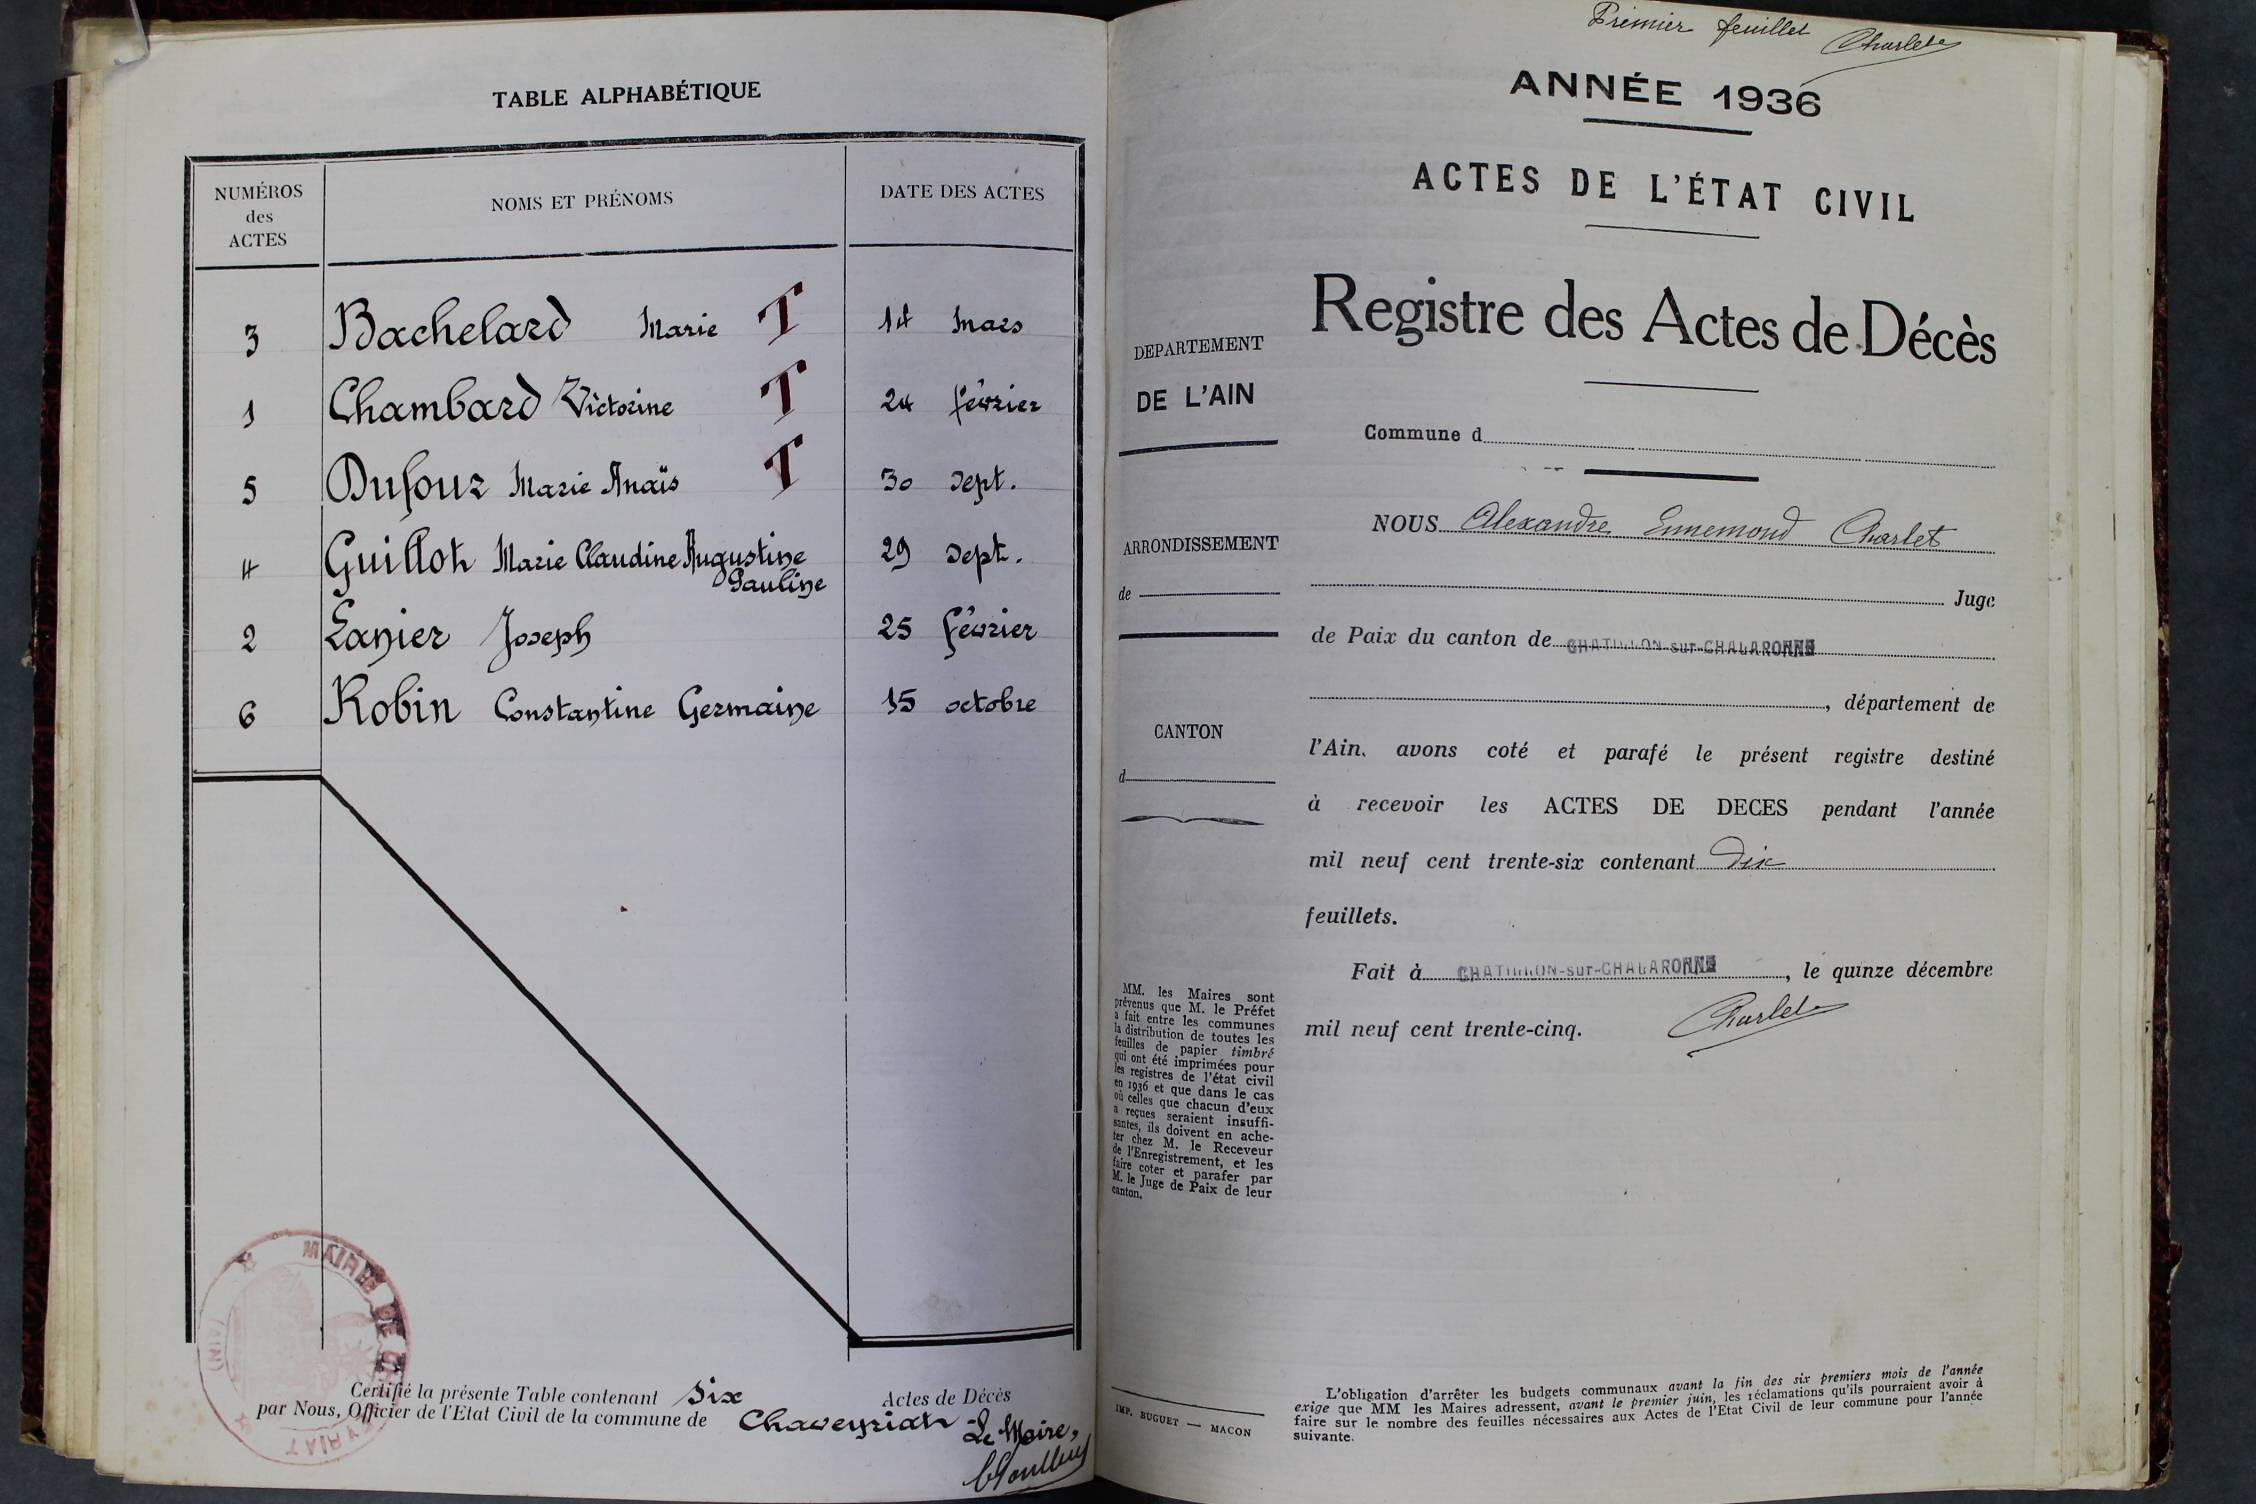 TABLE ALPHABÉTIQUE
NUMÉROS
des
ACTES
NOMS ET PRÉNOMS
DATE DES ACTES
3 Bachelard Marie T 14 mars
1 Chambard Victorine T 24 février
5 Dufour Marie Anaïs T 30 sept.
4 Guillot Marie Claudine Augustine 29 sept.
Pauline
2 Lanier Joseph 25 février
6 Robin Constantine Germaine 15 octobre
MAIRIE DE
(AIN)
Certifié la présente Table contenant six Actes de Décès
par Nous, Officier de l'Etat Civil de la commune de Chaveyriat
Le Maire,
Premier feuillet
Charlet
ANNÉE 1936
ACTES DE L'ÉTAT CIVIL
Registre des Actes de Décès
DEPARTEMENT
DE L'AIN
Commune d
ARRONDISSEMENT
de
CANTON
d
NOUS Alexandre Ennemond Charlet
Juge
de Paix du canton de CHATILLON-sur-CHALARONNE
, département de
l'Ain, avons coté et parafé le présent registre destiné
à recevoir les ACTES DE DECES pendant l'année
mil neuf cent trente-six contenant Dix
feuillets.
Fait à CHATILLON-sur-CHALARONNE, le quinze décembre
mil neuf cent trente-cinq.
Charlet
MM. les Maires sont
prévenus que M. le Préfet
a fait entre les communes
la distribution de toutes les
feuilles de papier timbré
qui ont été imprimées pour
les registres de l'état civil
en 1936 et que dans le cas
où celles que chacun d'eux
a reçues seraient insuffi-
santes, ils doivent en ache-
ter chez M. le Receveur
de l'Enregistrement, et les
faire coter et parafer par
M. le Juge de Paix de leur
canton.
IMP. BUGUET — MACON
L'obligation d'arrêter les budgets communaux avant la fin des six premiers mois de l'année
exige que MM les Maires adressent, avant le premier juin, les réclamations qu'ils pourraient avoir à
faire sur le nombre des feuilles nécessaires aux Actes de l'Etat Civil de leur commune pour l'année
suivante.